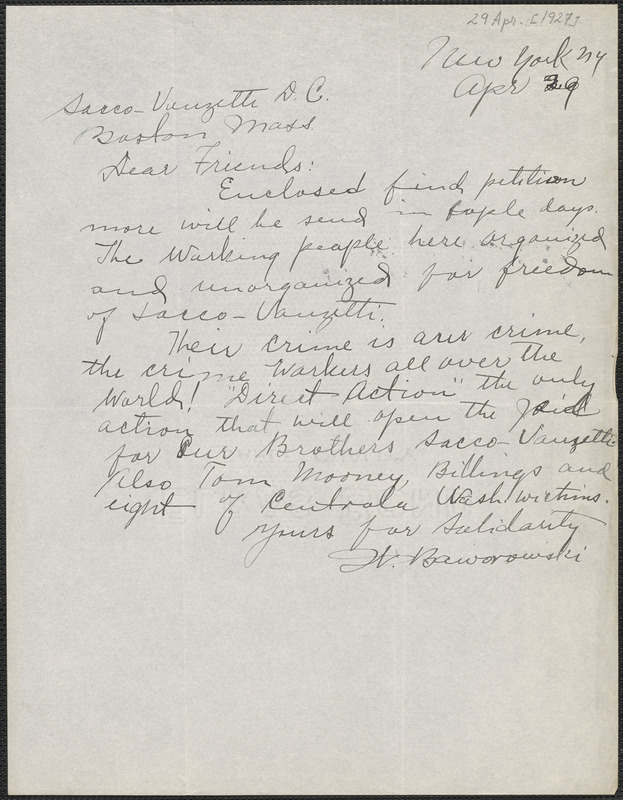 29 Apr. [1927]
New York NY
Apr 29
Sacco-Vanzetti D.C.
Boston Mass.
Dear Friends:
Enclosed find petition
more will be send in cople days.
The Working people here organized
and unorganized for freedom
of Sacco-Vanzetti.
Their crime is aur crime,
the crime Workers all over the
World! "Direct Action" the only
action that will open the Jail
for Our Brothers Sacco-Vanzetti
Also Tom Mooney, Billings and
eight of Centrala Wash. victims.
Yours for Solidarity
W. Baworowski